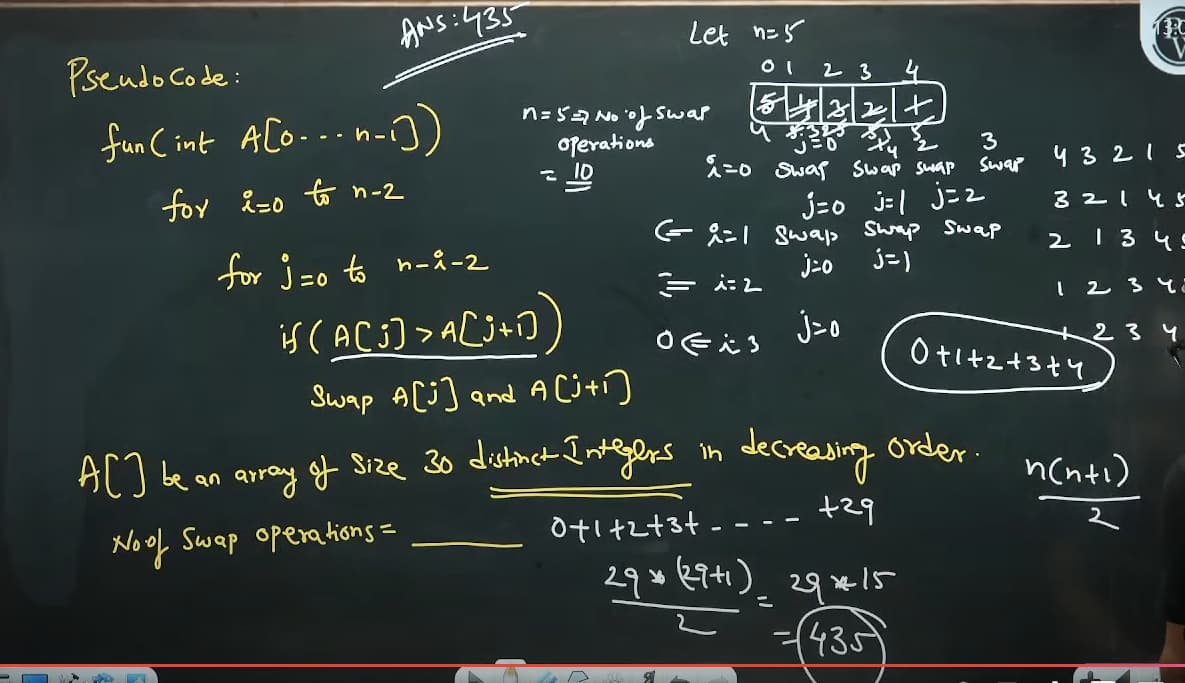 ANS: 435
Pseudocode:
fun(int A[0---n-1])
for i=0 to n-2
for j=0 to n-i-2
if(A[j]>A[j+1])
Swap A[j] and A[j+1]
Let n=5
0 1 2 3 4
5 4 3 2 1
n=5⇒ No of swap
operations
= 10
j=0 1 2 3
i=0 swap swap swap swap
j=0 j=1 j=2
i=1 swap swap swap
j=0 j=1
i=2
0 ⇐ i=3 j=0
4 3 2 1 5
3 2 1 4 5
2 1 3 4 5
1 2 3 4
1 2 3 4
0+1+2+3+4
A[] be an array of Size 30 distinct Integers in decreasing order.
No of Swap operations = ______
0+1+2+3+---- +29
29*(29+1)/2 = 29*15
= 435
n(n+1)
2